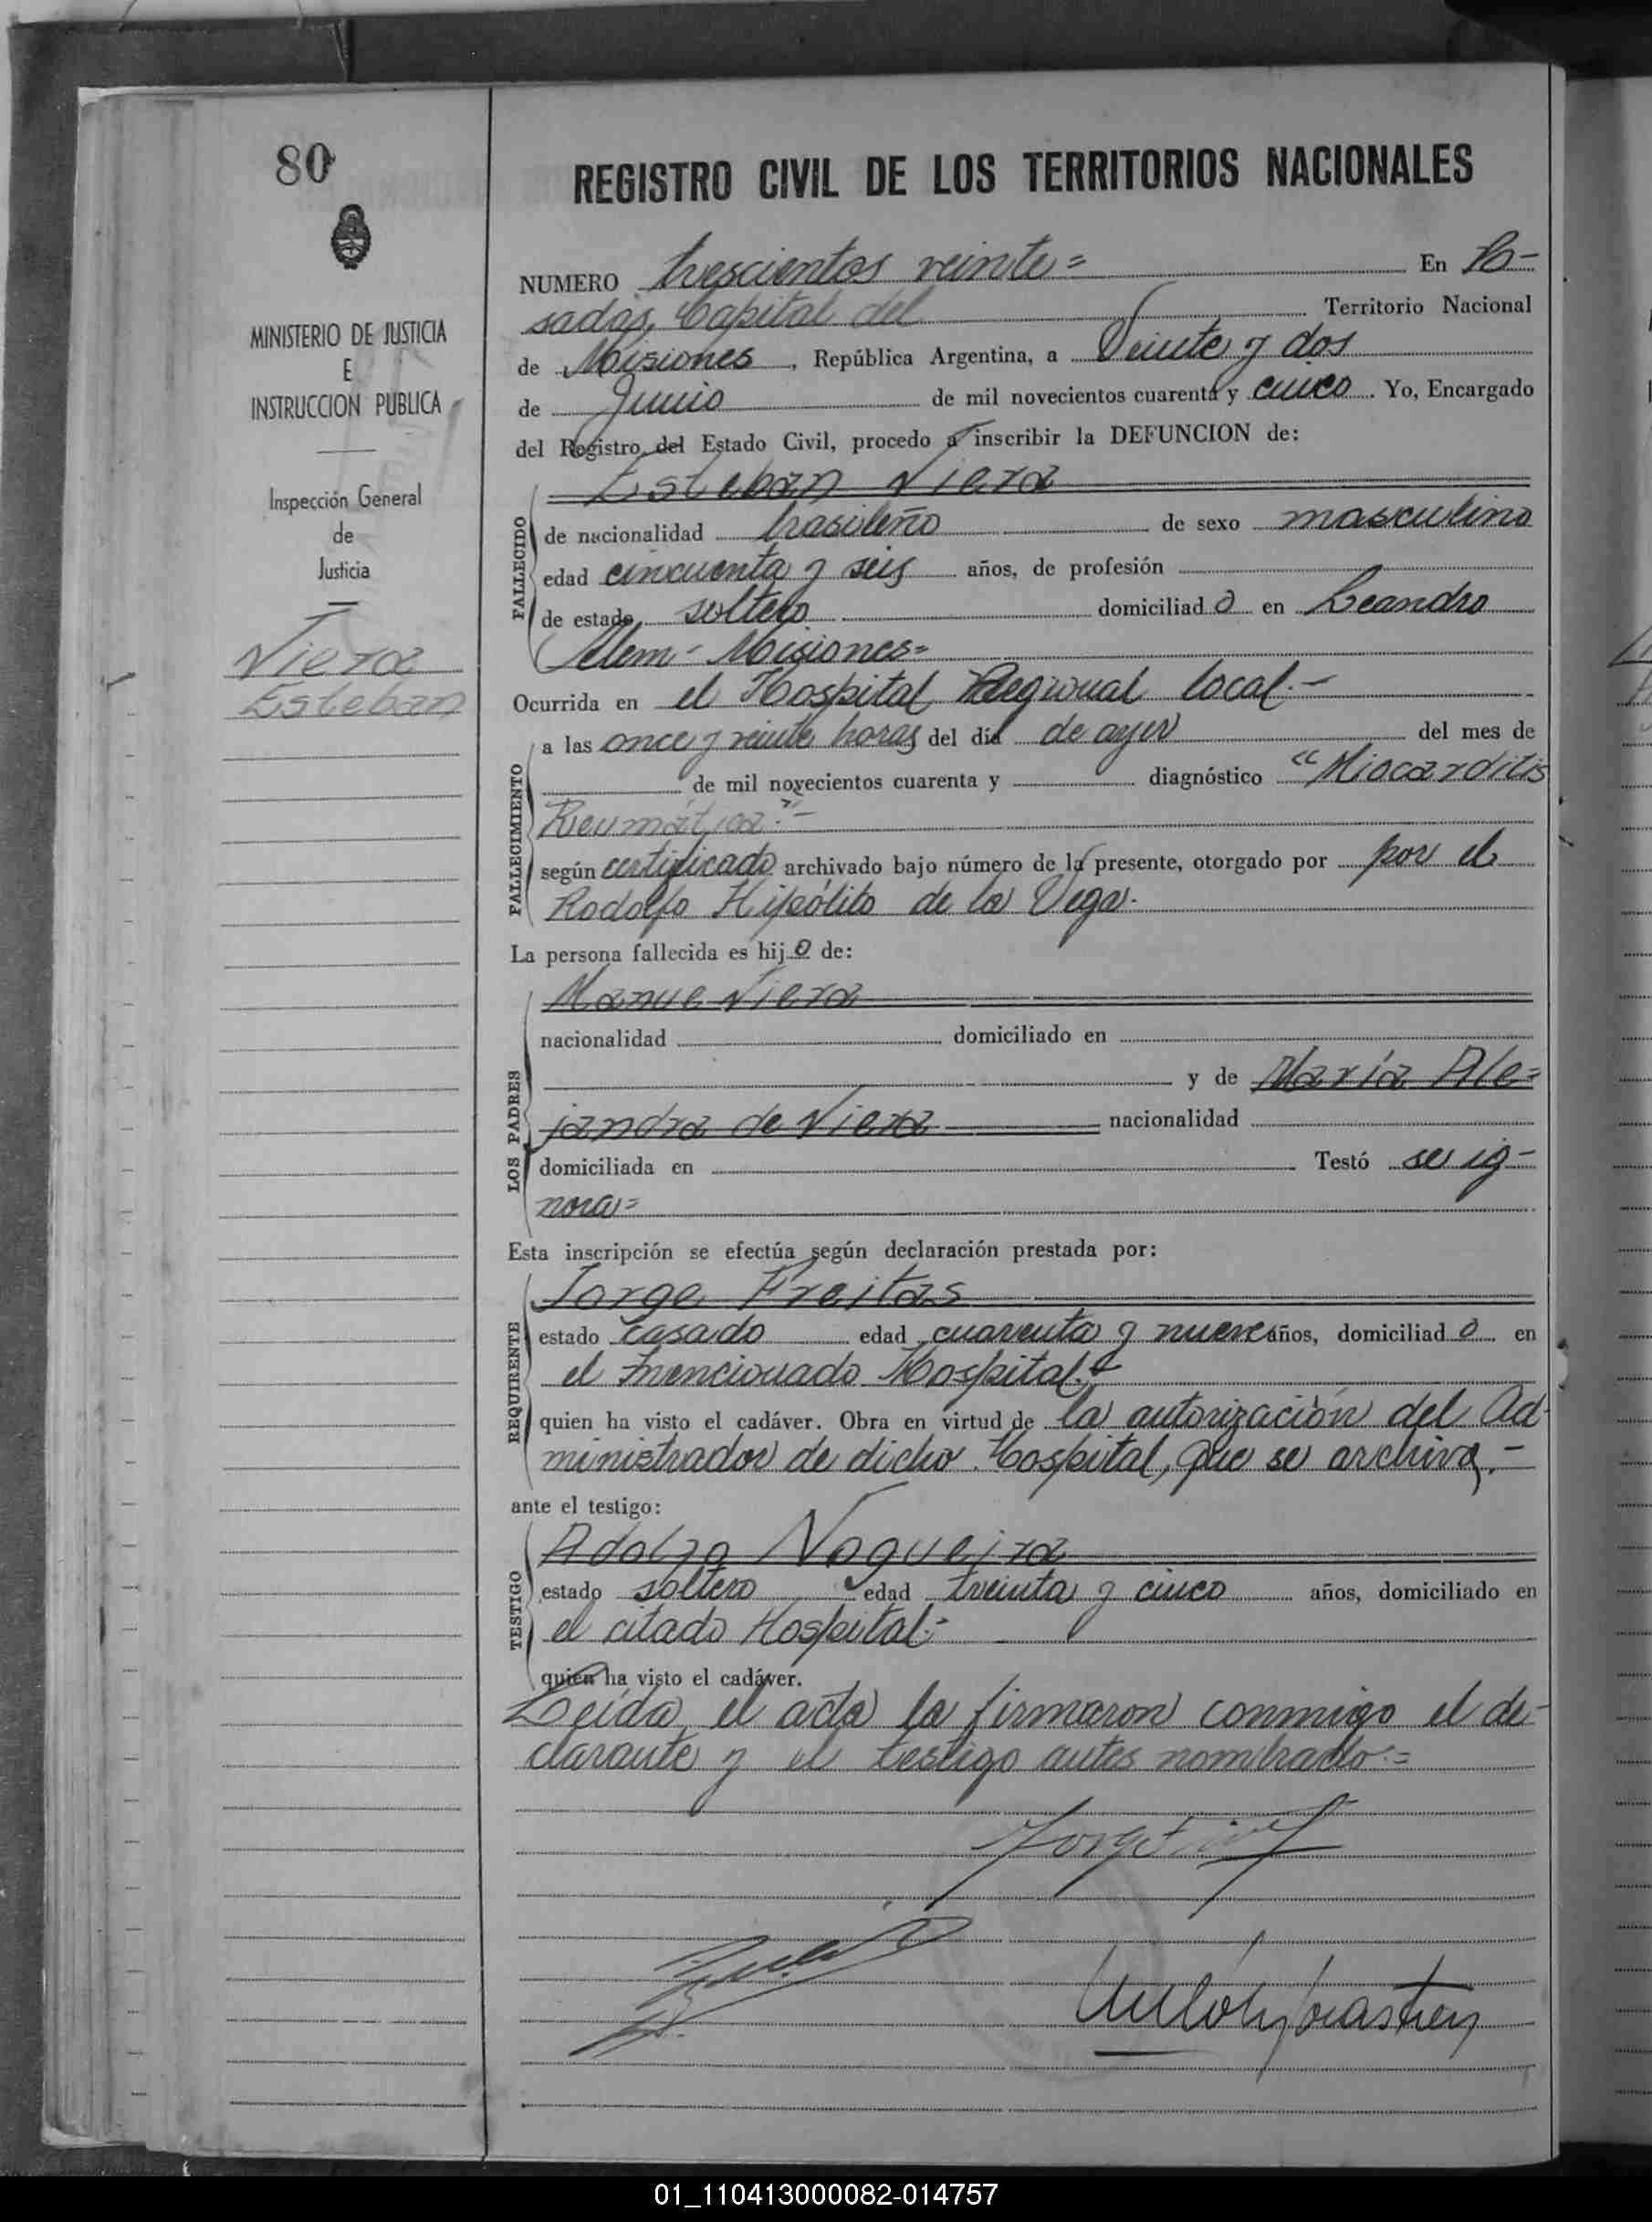 80
REGISTRO CIVIL DE LOS TERRITORIOS NACIONALES
MINISTERIO DE JUSTICIA
E
INSTRUCCION PUBLICA
Inspección General
de
Justicia
Viera
Esteban
NUMERO trescientos veinte= En Po-
sadas, Capital del Territorio Nacional
de Misiones, República Argentina, a Veinte y dos
de Junio de mil novecientos cuarenta y cinco. Yo, Encargado
del Registro del Estado Civil, procedo a inscribir la DEFUNCION de:
Esteban Viera
FALLECIDO
de nacionalidad brasileño de sexo masculino
edad cincuenta y seis años, de profesión
de estado soltero domiciliado en Leandro
Alem - Misiones=
Ocurrida en el Hospital Regional local.-
FALLECIMIENTO
a las once y veinte horas del día de ayer del mes de
de mil novecientos cuarenta y diagnóstico "Miocarditis
Reumática."-
según certificado archivado bajo número de la presente, otorgado por por el
Rodolfo Hipólito de la Vega.
La persona fallecida es hijo de:
LOS PADRES
Manue Viera
nacionalidad domiciliado en
y de María Ale=
jandra de Viera nacionalidad
domiciliada en Testó se ig-
nora=
Esta inscripción se efectúa según declaración prestada por:
REQUIRENTE
Jorge Freitas
estado casado edad cuarenta y nueve años, domiciliado en
el mencionado Hospital.-
quien ha visto el cadáver. Obra en virtud de la autorización del Ad-
ministrador de dicho Hospital, que se archiva.-
ante el testigo:
TESTIGO
Adolfo Nogueira
estado soltero edad treinta y cinco años, domiciliado en
el citado Hospital:-
quien ha visto el cadáver.
Leída el acta la firmaron conmigo el de-
clarante y el testigo antes nombrado.=
01_110413000082-014757